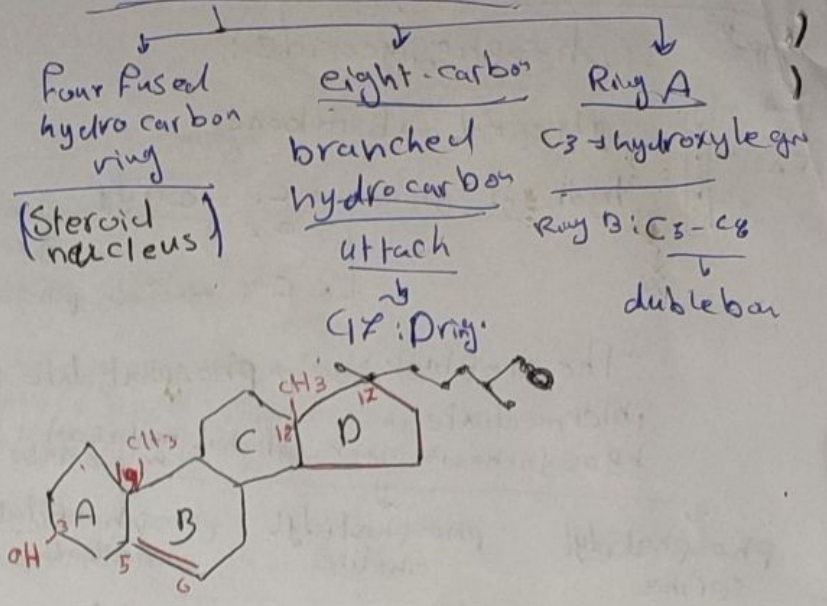 four fused
hydrocarbon
ring
(Steroid
nucleus)
eight-carbon
branched
hydrocarbon
attach
C17:Dring.
Ring A
C3→hydroxyle
Ring B:
dublebon
CH3
17
CH3
18
C
D
A
B
3
OH
5
6